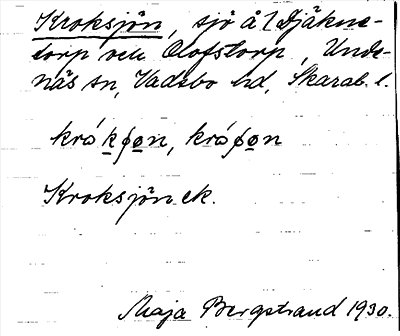 Kroksjön, sjö å 1 Djäkne-
torp och Olofstorp, Unde-
näs sn, Vadsbo hd, Skarab. l.
krókʃo̲n, króʃo̲n
Kroksjön ek.
Maja Bergstrand 1930.